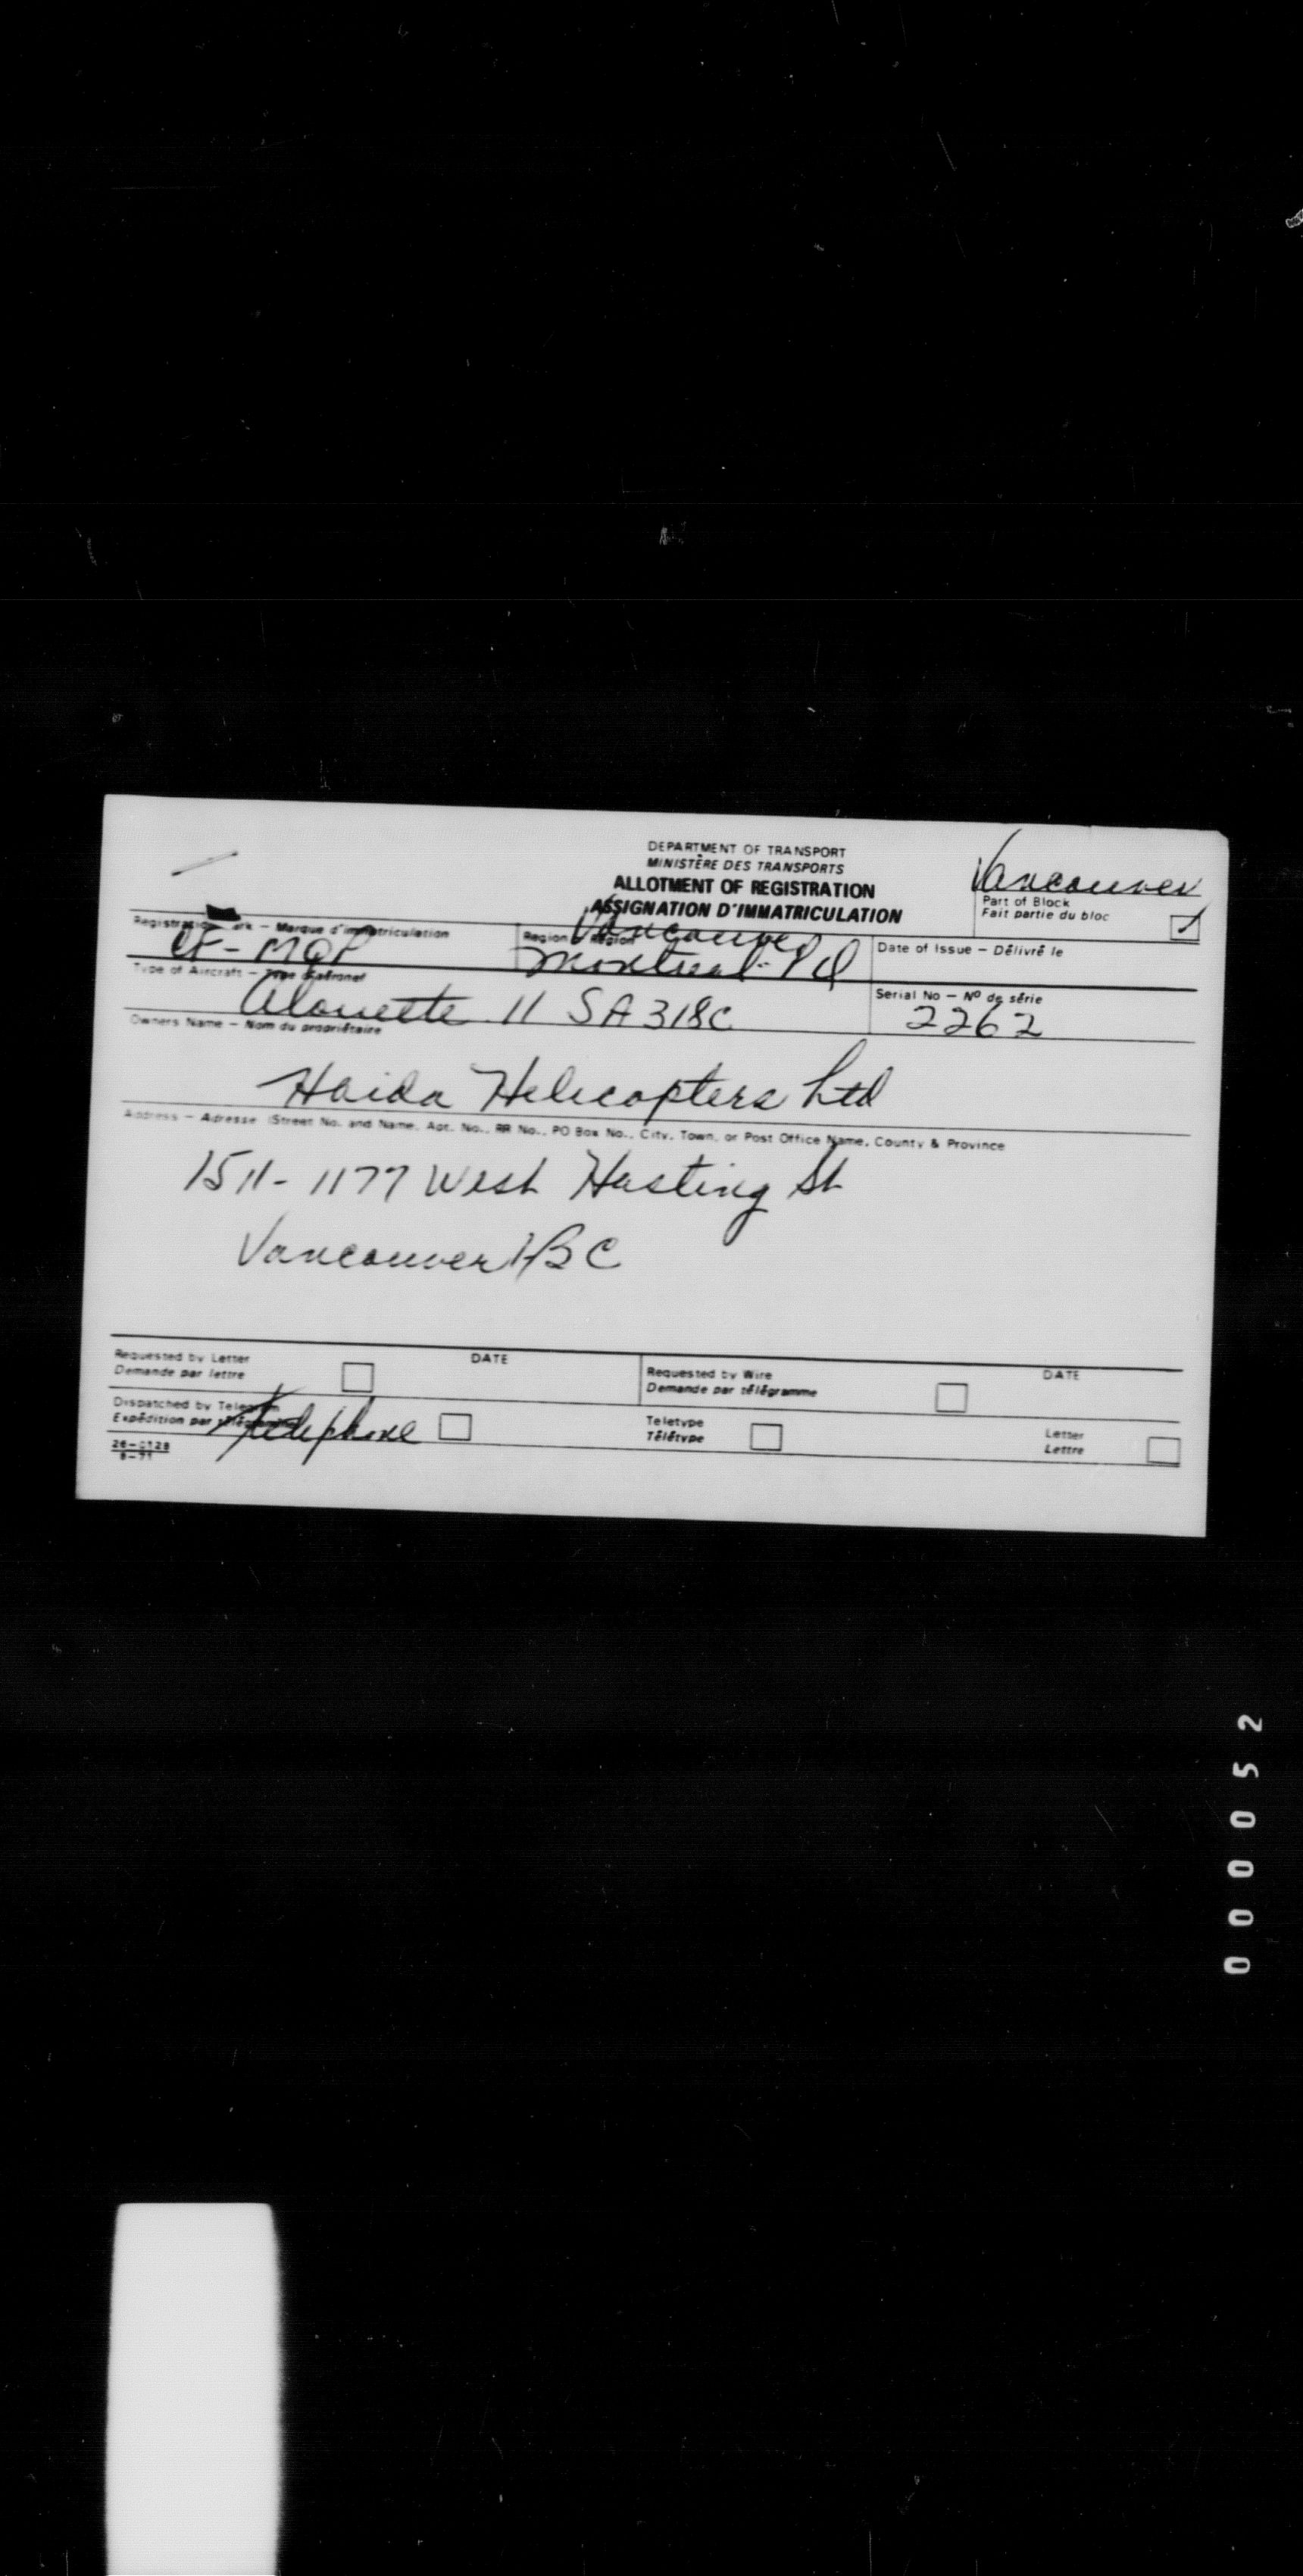 DEPARTMENT OF TRANSPORT
MINISTÈRE DES TRANSPORTS
ALLOTMENT OF REGISTRATION
ASSIGNATION D'IMMATRICULATION
Vancouver
Part of Block
Fait partie du bloc
Registration Mark – Marque d'immatriculation
CF-MQP
Region – Région
Vancouver
Montreal - PQ
Date of Issue – Délivré le
Type of Aircraft – Type d'aéronef
Alouette 11 SA318C
Serial No – Nº de série
2262
Owners Name – Nom du propriétaire
Haida Helicopters Ltd
Address – Adresse (Street No. and Name, Apt. No., RR No., PO Box No., City, Town, or Post Office Name, County & Province
1511-1177 West Hasting St
Vancouver 1, BC
Requested by Letter
Demande par lettre
DATE
Requested by Wire
Demande par télégramme
DATE
Dispatched by Telegram
Expédition par
Telephone
Teletype
Télétype
Letter
Lettre
26-0128
6-71
000052